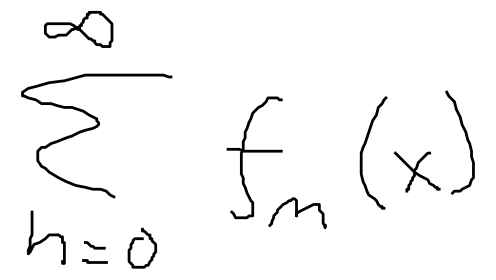 \sum_{n=0}^{\infty} f_m(x)